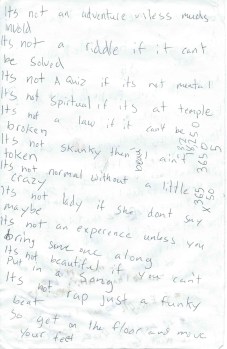 Its not an adventure unless muds
invold
Its not a riddle if it can't
be solved
Its not A Quiz if its not mental
Its not Spiritual if its at temple
Its not a law if it can't be
broken
Its not skanky then ain't
token
Its not normal without a little
crazy
Its not lady if she dont say
maybe
Its not an experence unless you
bring some one along
Its not beautiful if you can't
Put in a song
Its not rap just a funky
beat
So get on the floor and move
your feet
365
x 50